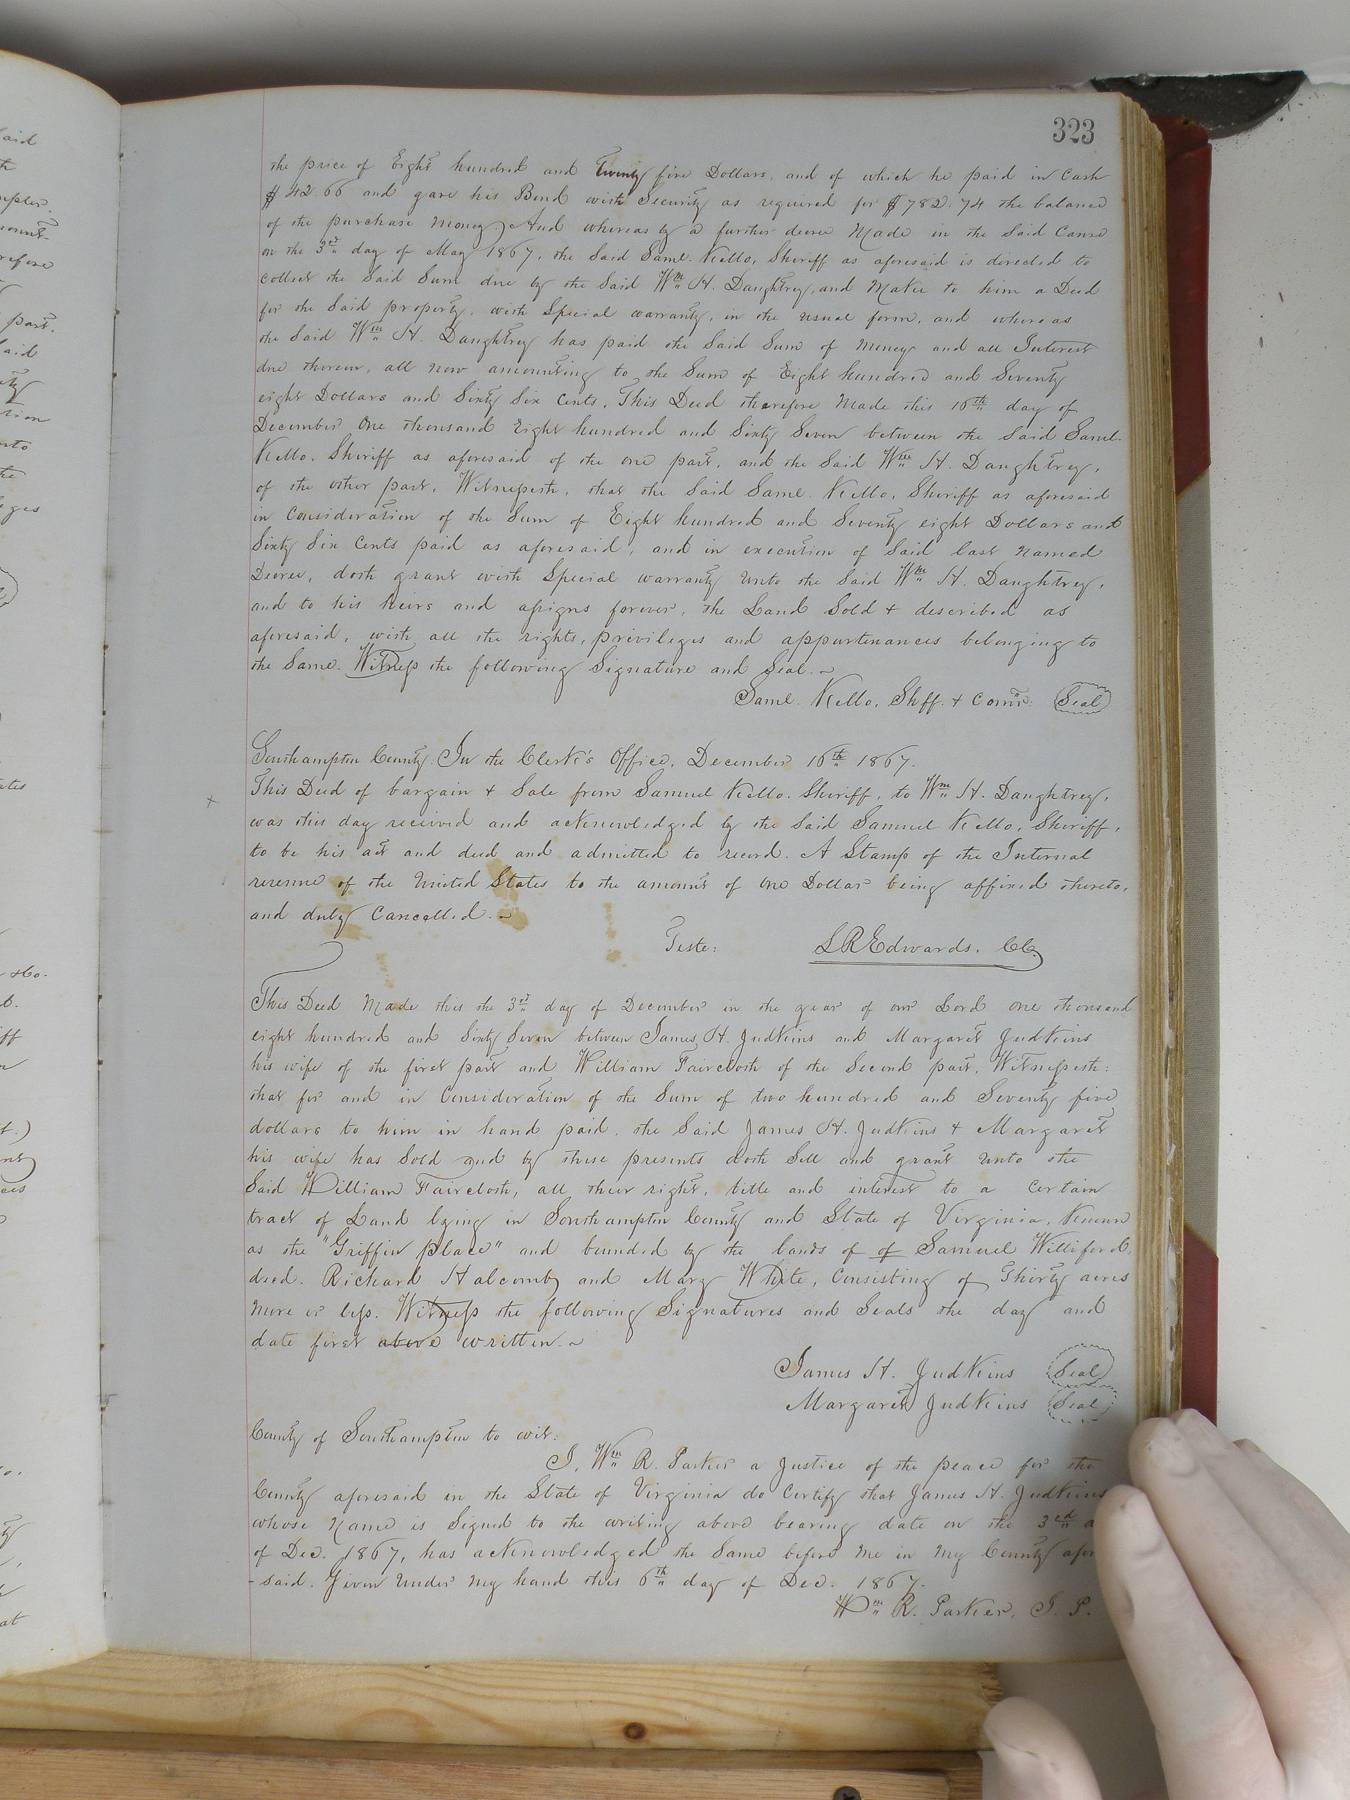 323
the price of Eight hundred and Twenty five Dollars, and of which he paid in Cash
$42.66 and gave his Bond with Security as required for $782.74 the balance
of the purchase money, And whereas by a further decree Made in the Said Cause
on the 3rd day of May 1867, the Said Saml. Kello, Sheriff as aforesaid is directed to
collect the Said Sum due by the Said Wm H. Daughtrey, and Make to him a Deed
for the Said property, with Special warranty, in the usual form, and whereas
the Said Wm H. Daughtrey has paid the Said Sum of Money and all Interest
due thereon, all now amounting to the Sum of Eight hundred and Seventy
eight Dollars and Sixty Six Cents, This Deed therefore Made this 16th day of
December One thousand Eight hundred and Sixty Seven between the Said Saml.
Kello, Sheriff as aforesaid of the one part, and the Said Wm H. Daughtrey,
of the other part, Witnesseth, that the Said Saml. Kello, Sheriff as aforesaid
in Consideration of the Sum of Eight hundred and Seventy eight Dollars and
Sixty Six Cents paid as aforesaid, and in execution of Said last named
Decree, doth grant with Special warranty unto the Said Wm H. Daughtrey,
and to his heirs and assigns forever, the Land Sold & described as
aforesaid, with all the rights, privileges and appurtenances belonging to
the Same. Witness the following Signature and Seal.~
Saml. Kello, Shff. & Comr. Seal
Southampton County: In the Clerk's Office, December 16th 1867.
This Deed of bargain & Sale from Samuel Kello, Sheriff, to Wm H. Daughtrey,
was this day received and acknowledged by the Said Samuel Kello, Sheriff,
to be his act and deed and admitted to record. A Stamp of the Internal
revenue of the United States to the amount of One Dollar being affixed thereto,
and duly Cancelled.~
Teste: L R Edwards, CC.
This Deed Made this the 3rd day of December in the year of our Lord one thousand
eight hundred and Sixty Seven between James H. Judkins and Margaret Judkins
his wife of the first part and William Faircloth of the Second part, Witnesseth:
that for and in Consideration of the Sum of two hundred and Seventy five
dollars to him in hand paid, the Said James H. Judkins & Margaret
his wife has Sold and by these presents doth Sell and grant unto the
Said William Faircloth, all their right, title and interest to a Certain
tract of Land lying in Southampton County and State of Virginia, Known
as the "Griffin place" and bounded by the lands of of Samuel Williford,
decd. Richard Halcomb and Mary White, Consisting of Thirty acres
more or less. Witness the following Signatures and Seals the day and
date first above written.~
James H. Judkins Seal
Margaret Judkins Seal
County of Southampton to wit:
I, Wm R. Parker a Justice of the peace for the
County aforesaid in the State of Virginia do Certify that James H. Judkins
whose Name is Signed to the writing above bearing date on the 3rd
of Dec. 1867, has acknowledged the Same before me in my County afore
-said. Given Under my hand this 6th day of Dec. 1867.
Wm R. Parker, J. P.